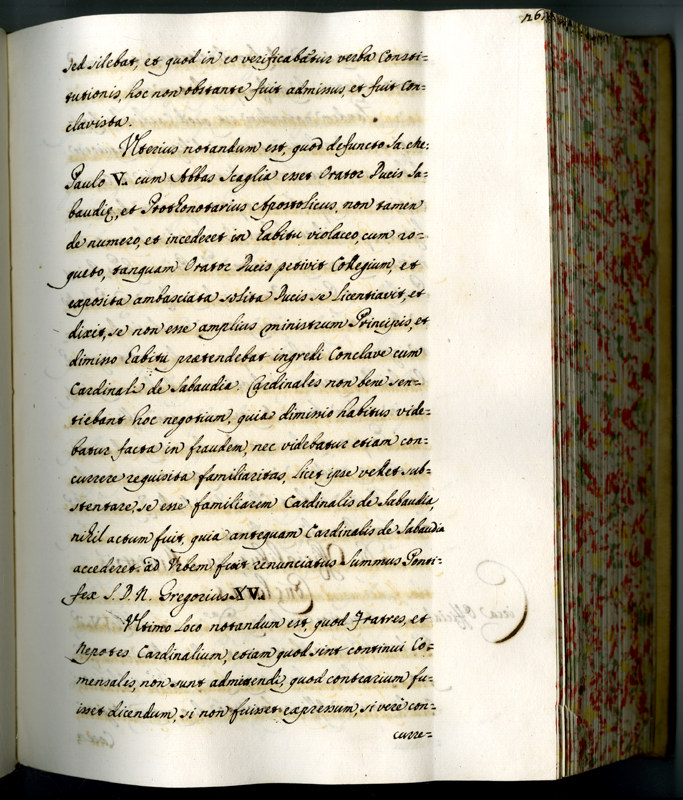 126
sed silebat, et quod in eo verificabatur verba Consti=
tutionis, hoc non obstante fuit admissus, et fuit con=
clavista.
Ulterius notandum est, quod defuncto sa: che:
Paulo V. cum Abbas Scaglia esset Orator Ducis Sa=
baudię, et Prothonotarius Apostolicus, non tamen
de numero, et incederet in habitu violaceo, cum ro=
gueto, tanquam Orator Ducis petivit Collegium, et
exposita ambasciata solita Ducis se licentiavit, et
dixit, se non esse amplius ministrum Principis, et
dimisso habitu prætendebat ingredi Conclave cum
Cardinali de Sabaudia. Cardinales non bene sen=
tiebant hoc negotium, quia dimissio habitus vide=
batur facta in fraudem, nec videbatur etiam con=
currere requisita familiaritas, licet ipse vellet sub=
stentare, se esse familiarem Cardinalis de Sabaudia,
nihil actum fuit, quia antequam Cardinalis de Sabaudia
accederet ad Urbem fuit renunciatus Summus Ponti=
fex S. D. N. Gregorius XV.
Ultimo loco notandum est, quod Fratres, et
Nepotes Cardinalium, etiam quod sint continui Co=
mensales, non sunt admittendi, quod contrarium fu=
isset dicendum, si non fuisset expressum, si verè con=
curre=